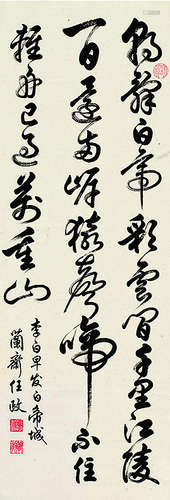 朝辭白帝彩雲間千里江陵
一日還兩岸猿聲啼不住
輕舟已過萬重山
李白早发白帝城
蘭齋任政